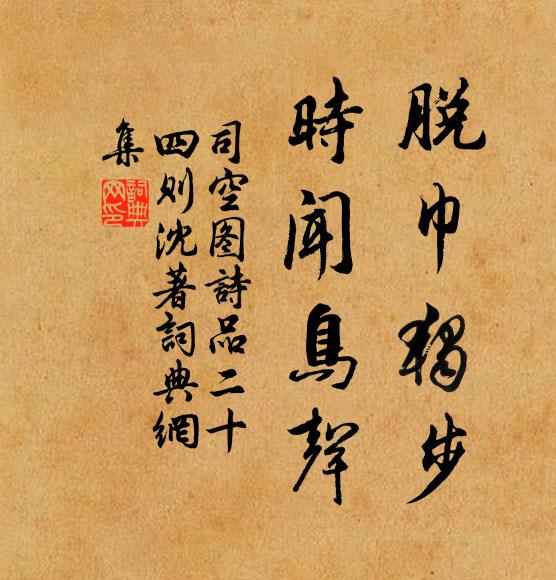 脱巾獨步
時聞鳥聲
司空图詩品二十
四则沈著詞典網
集
詞典
网印